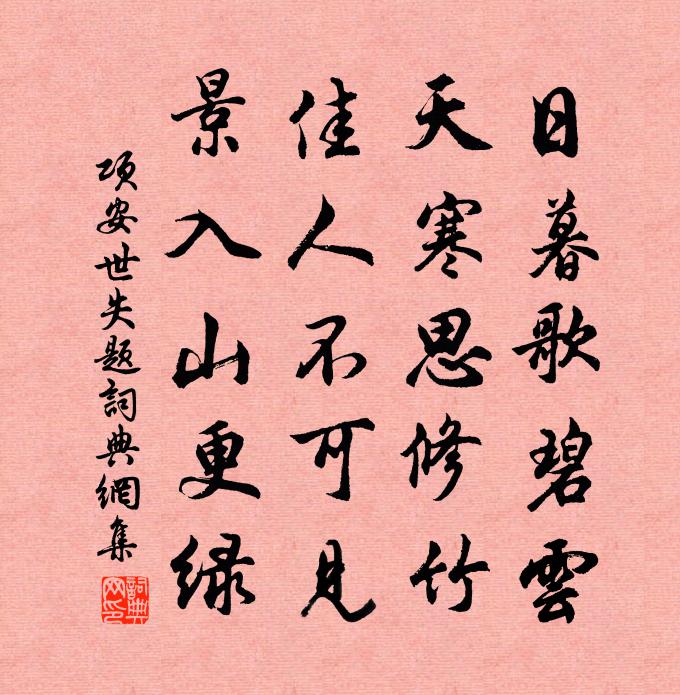 日暮歌碧雲
天寒思修竹
佳人不可見
景入山更绿
项安世失题詞典網集
詞典網印